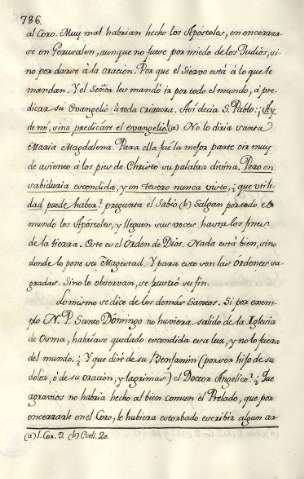 786.
al Coro. Muy mal habrian hecho los Apóstoles, en encerrar-
se en Jerusalen, aunque no fuese por miedo de los Judios, si-
no por darse à la oracion. Por que el Siervo está à lo que le
mandan. Y el Señor les mandó ir por todo el mundo, à pre-
dicar su Evangelio à toda criatura. Asi decia S. Pablo: ¡Ay
de mi, sino predicáre el evangelio! (a) No lo diria Santa
Maria Magdalena. Para ella fué la mejor parte oir muy
de asiento à los pies de Christo su palabra divina. Pero en
sabiduria escondida, y un tesoro nunca visto, ¿que utili-
dad puede haber? pregunta el Sabio (b) Salgan por todo el
mundo los Apóstoles, y lleguen sus voces hasta los fines
de la tierra. Este es el Orden de Dios. Nada está bien, sino
donde lo pone su Magestad. Y para esto son las Ordenes sa-
gradas. Sino lo observan, se frustró su fin.
Lo mismo se dice de los demás Santos. Si por exem-
plo N. P. Santo Domingo no huviera salido de la Iglesia
de Osma, habriase quedado escondida esa luz, y no lo fuera
del mundo. ¿Y que diré de su Benjamin (por ser hijo de su
dolor, ó de su oracion, y lagrimas) el Doctor Angelico? ¿Que
agravios no habria hecho al bien comun el Prelado, que por
encerrarle en el Coro, le hubiera estorbado escribir algun ar-
(a) 1. Cor. 9. (b) Ecli. 20.